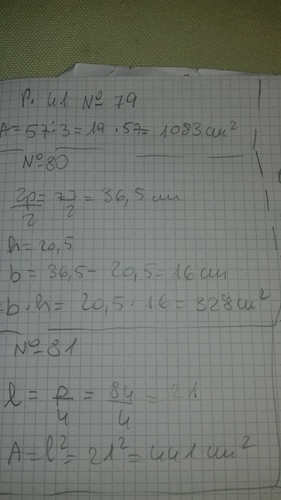 P. 41 N° 79
A = 57 : 3 = 19 · 57 = 1083 cm²
N° 80
2p/2 = 73/2 = 36,5 cm
h = 20,5
b = 36,5 - 20,5 = 16 cm
= b · h = 20,5 · 16 = 328 cm²
N° 81
l = p/4 = 84/4 = 21
A = l² = 21² = 441 cm²